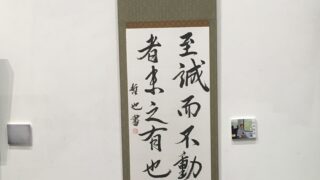 至誠而不動
者未之有也
哲也書